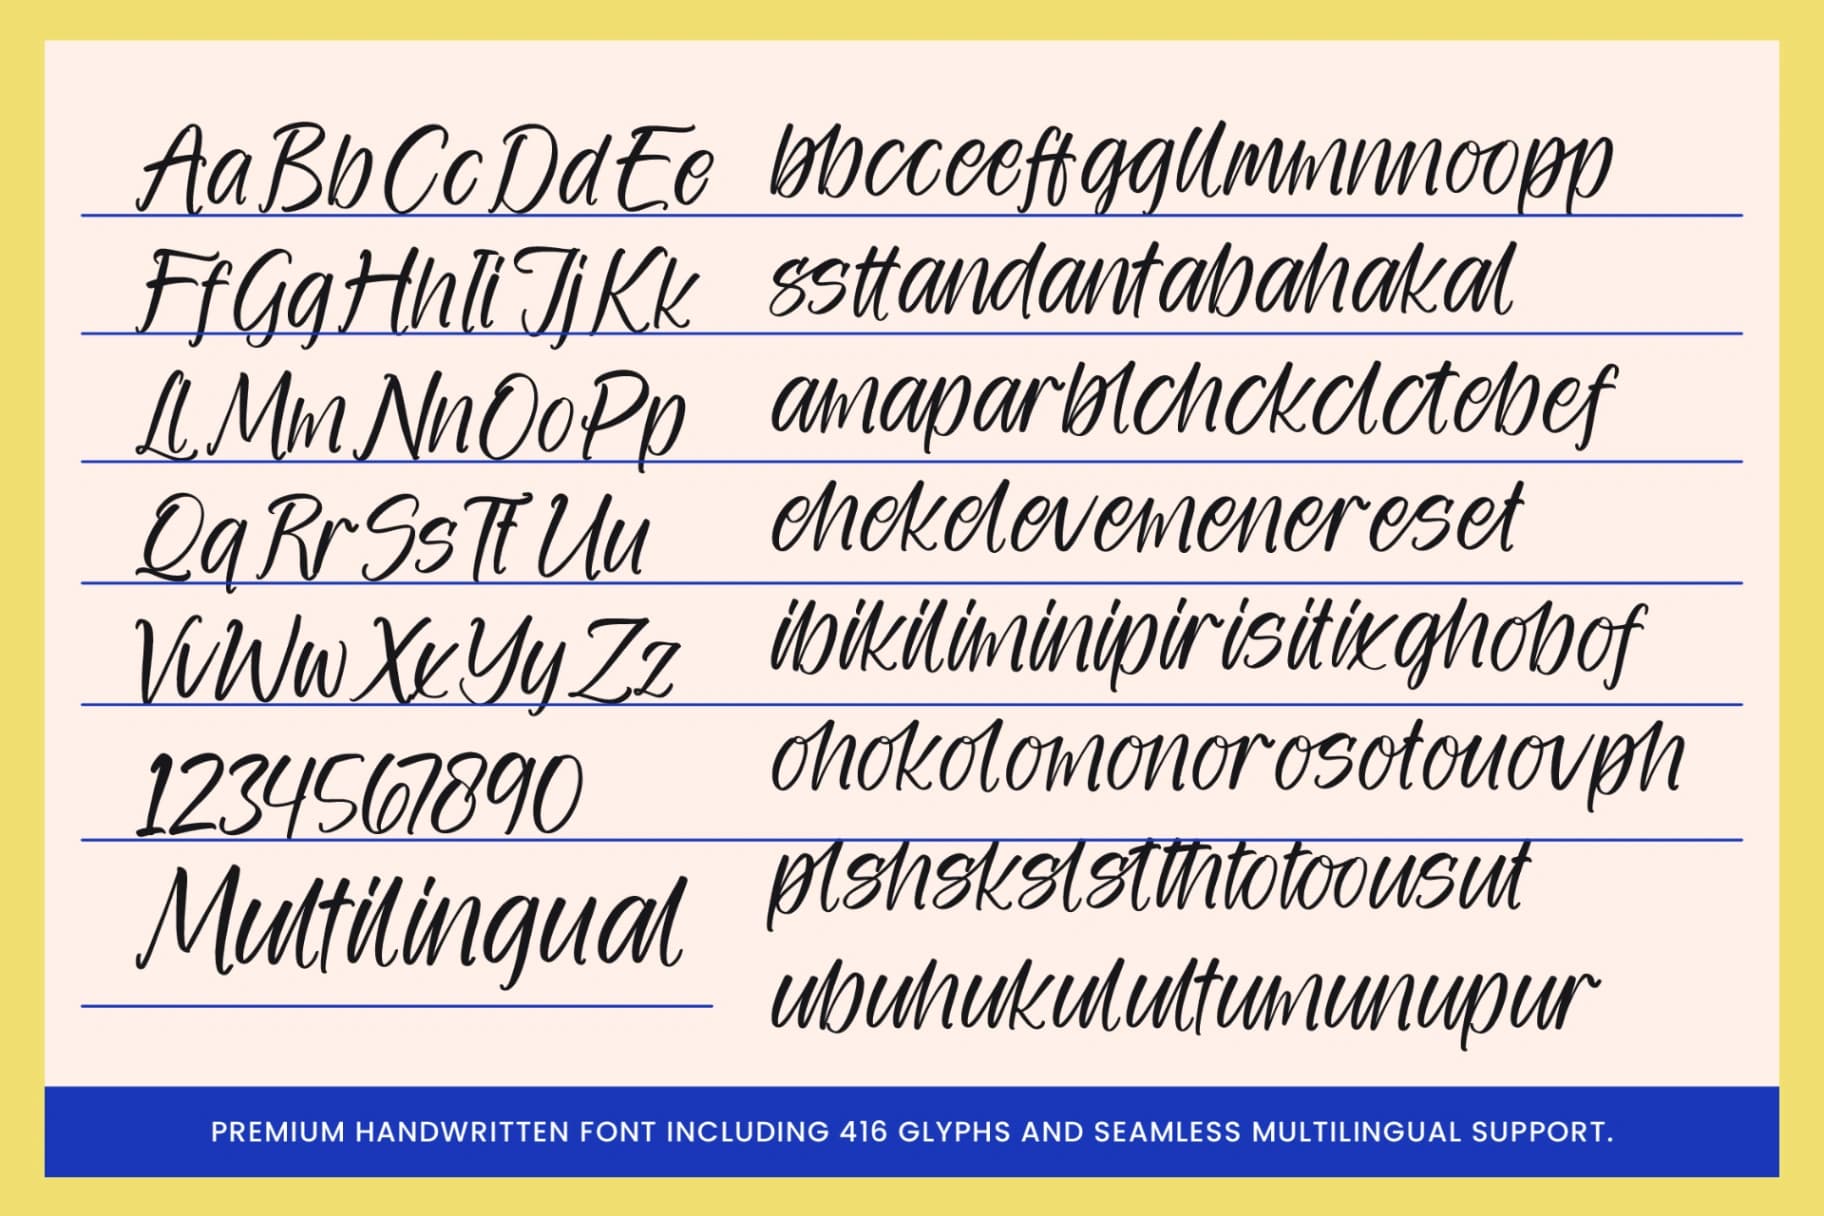 AaBbCcDdEe
FfGgHhIiJjKk
LlMmNnOoPp
QqRrSsTtUu
VvWwXxYyZz
1234567890
Multilingual
bbcceeffggllmmnnoopp
ssttandantabahakal
amaparblchckclctebef
ehekelevemenereset
ibikiliminipirisitixghobof
ohokolomonorosotouovph
plshskslstththtotoousut
ubuhukulultumunupur
PREMIUM HANDWRITTEN FONT INCLUDING 416 GLYPHS AND SEAMLESS MULTILINGUAL SUPPORT.